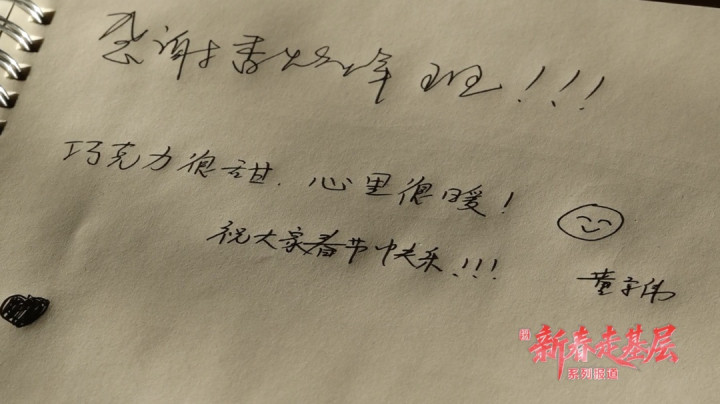 感谢李焕锋班!!!
巧克力很甜.心里很暖!
祝大家春节快乐!!!
董宇伟
新春走基层
系列报道